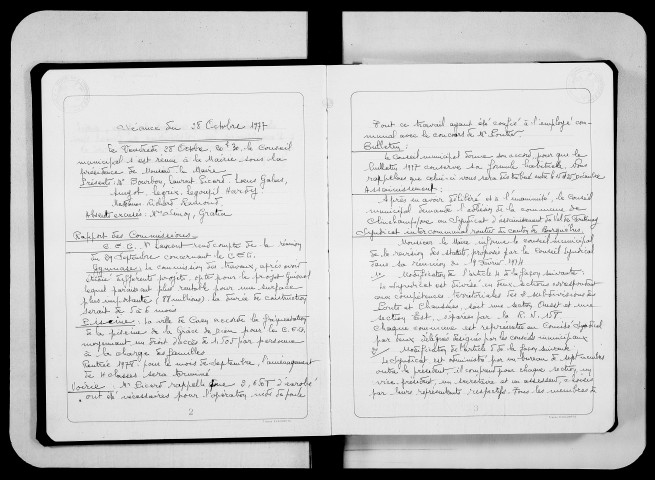 Séance du 28 Octobre 1977
Le Vendredi 28 Octobre, 20h 30, le Conseil
municipal s'est réuni à la Mairie sous la
présidence de Monsieur le Maire
Présents: Mr Bourbon, Laurent, Picard,
Hardy
Mesdames Richard
Absents excusés: Mr
Rapport des Commissions
C.E.G. Mr Laurent rend compte de la réunion
du 29 Septembre concernant le C.E.G.
Gymnase: la commission des travaux, après avoir
étudié différents projets, opte pour le projet
lequel paraissait plus rentable pour une surface
plus importante. La durée de construction
serait de 5 à 6 mois
Piscine: la ville de Caen accorde la fréquentation
à la piscine de la Grâce de Dieu pour le C.E.G.
moyennant un droit d'accès de 1.50F par personne
à la charge des familles
Rentrée 1978: pour le mois de Septembre, l'aménagement
de classes sera terminé
Voirie: Mr Picard rappelle que d'enrobé
ont été nécessaires pour l'opération
2
Tout ce travail ayant été confié à l'employé com-
munal avec le concours de Mr
Bulletin:
Le Conseil municipal donne son accord pour que le
bulletin 1977 conserve sa formule habituelle. Nous
rappelons que celui-ci vous sera distribué entre le Décembre
Assainissement:
Après en avoir délibéré et à l'unanimité, le Conseil
municipal demande l'adhésion de la commune de
au Syndicat d'assainissement de
Syndicat intercommunal routier du canton de Bourguébus
Monsieur le Maire informe le conseil municipal
de la révision des statuts, proposés par le Conseil Syndical
dans sa réunion du
1° Modification de l'article 4 de la façon suivante:
Le Syndicat est divisé en deux sections correspondant
aux compétences territoriales des 2 subdivisions des
Ponts et Chaussées, soit une section Ouest et une
section Est, séparées par la R.N. 158
Chaque commune est représentée au Comité Syndical
par deux délégués désignés par les conseils municipaux
Modification de l'article 5 de la façon suivante
Le Syndicat est administré par un bureau de sept membres
outre le président, il comprend pour chaque section, un
vice président, un secrétaire et un assesseur,
par leurs représentants respectifs. Tous les membres du
3